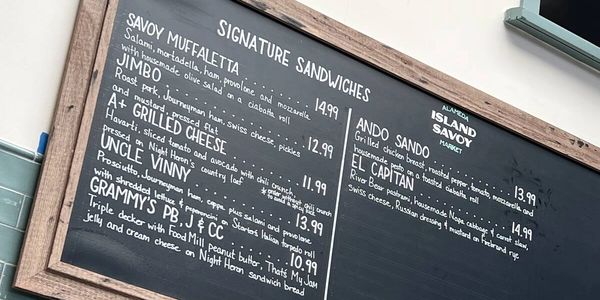 SIGNATURE SANDWICHES
SAVOY MUFFALETTA 14.99
Salami, mortadella, ham, provolone and mozzarella
with housemade olive salad on a ciabatta roll
JIMBO 12.99
Roast pork, Journeyman ham, swiss cheese, pickles
and mustard pressed flat
A+ GRILLED CHEESE 11.99
Havarti, sliced tomato and avocado with chili crunch
pressed on Night Heron's country loaf
* order without chili crunch
UNCLE VINNY 13.99
Prosciutto, Journeyman ham, coppa plus salami and provolone
with shredded lettuce & peperoncini on Starter's Italian torpedo roll
GRAMMY'S PB, J & CC 10.99
Triple decker with Food Mill peanut butter, That's My Jam
jelly and cream cheese on Night Heron sandwich bread
ALAMEDA
ISLAND
SAVOY
MARKET
ANDO SANDO 13.99
Grilled chicken breast, roasted pepper, tomato, mozzarella and
housemade pesto on a toasted ciabatta roll
EL CAPITAN 14.99
River Bear pastrami, housemade Napa cabbage & carrot slaw,
Swiss cheese, Russian dressing & mustard on Firebrand rye.